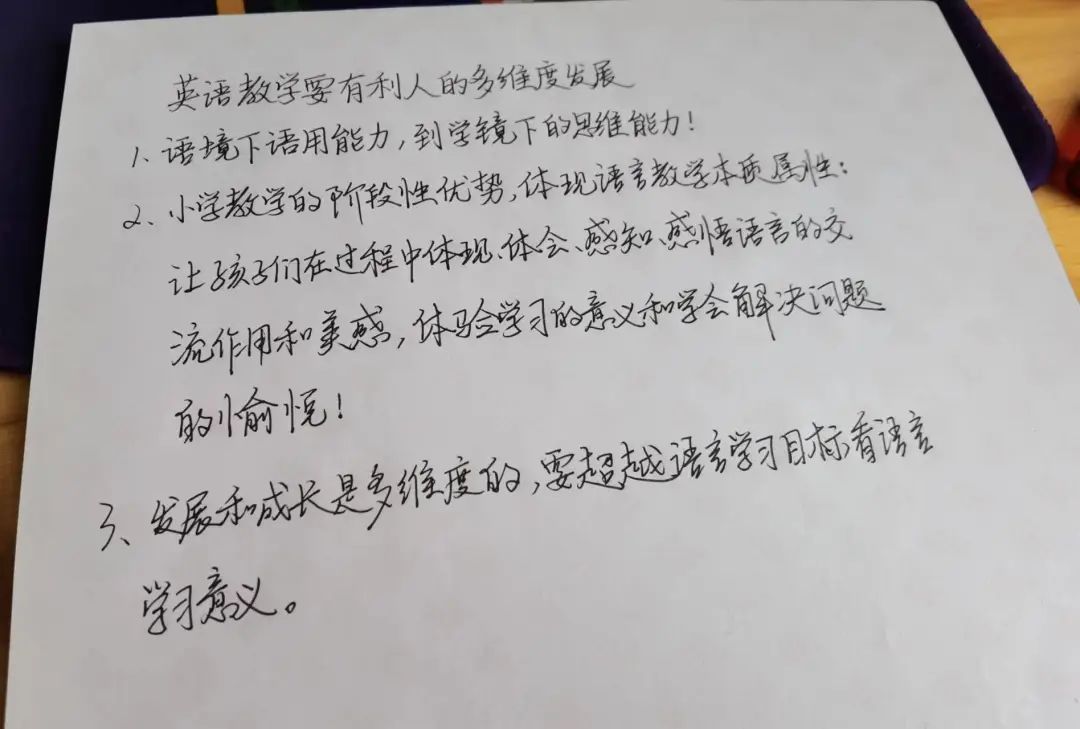 英语教学要有利人的多维度发展
1、语境下语用能力,到学镜下的思维能力!
2、小学教学的阶段性优势,体现语言教学本质属性:
让孩子们在过程中体现、体会、感知、感悟语言的交
流作用和美感,体验学习的意义和学会解决问题
的愉悦!
3、发展和成长是多维度的,要超越语言学习目标看语言
学习意义。